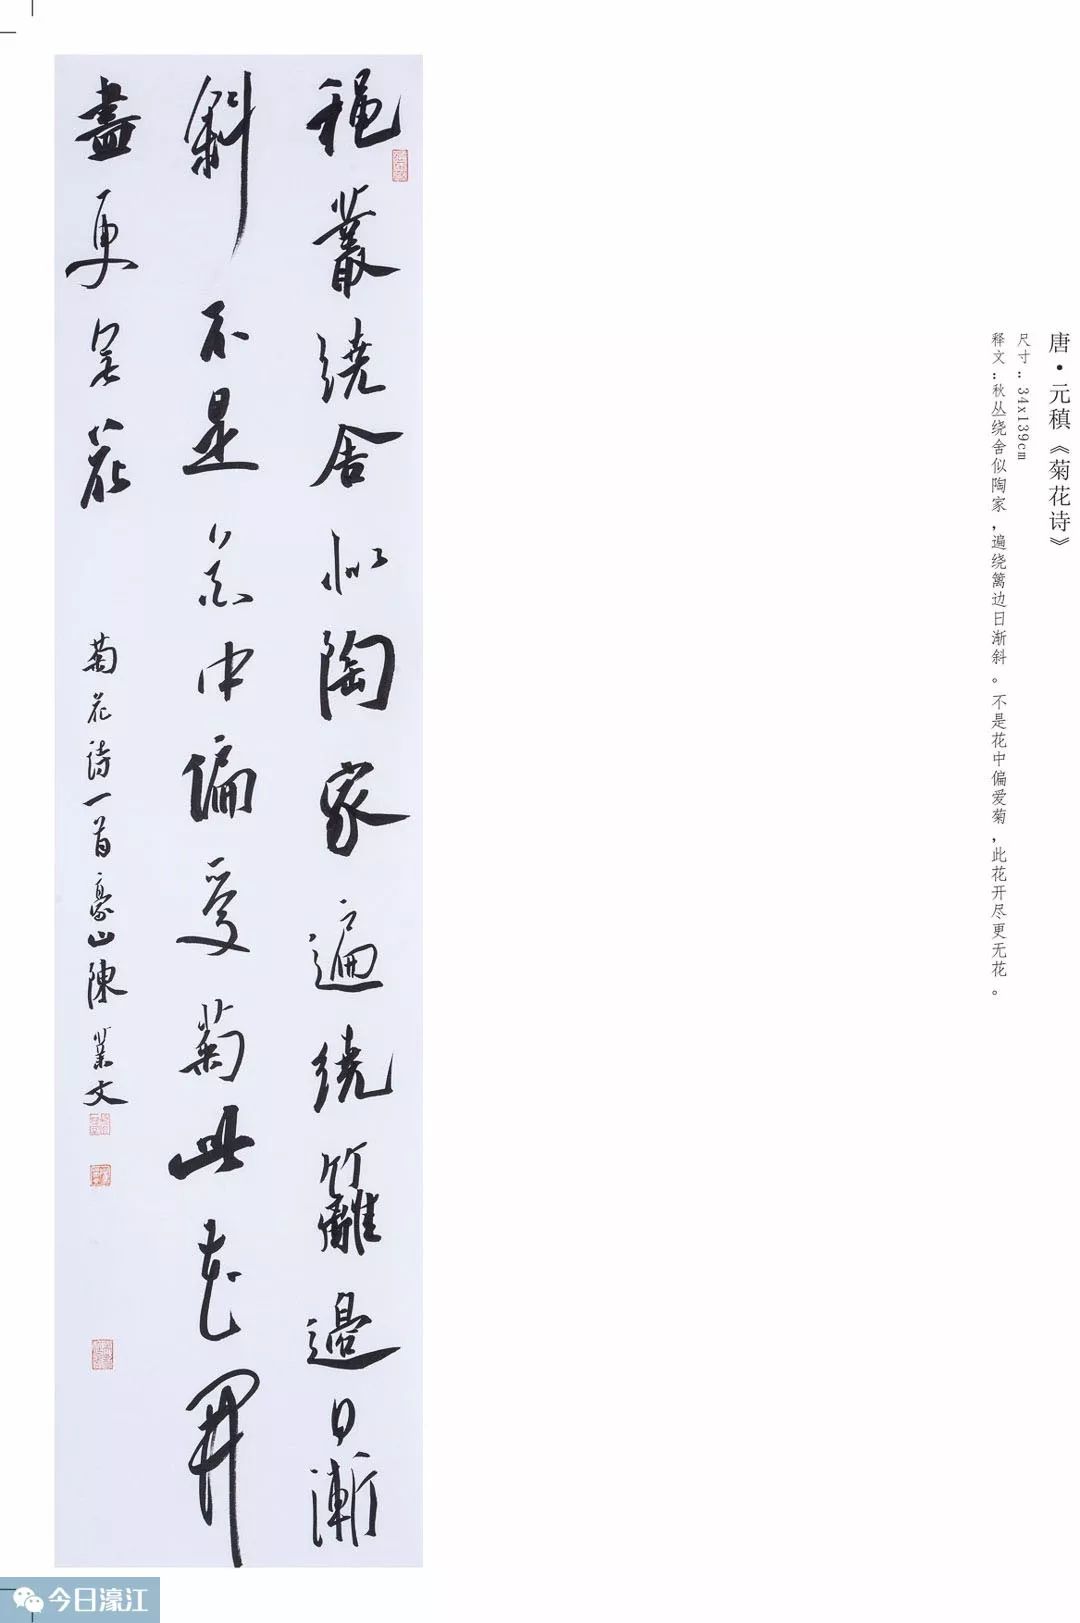 唐·元稹《菊花诗》
尺寸：34x139cm
释文：秋丛绕舍似陶家，遍绕篱边日渐斜。不是花中偏爱菊，此花开尽更无花。
穐叢繞舍似陶家遍繞籬邊日漸
斜不是花中偏愛菊此花開
盡更無花
菊花詩一首豪山陳業文
今日濠江